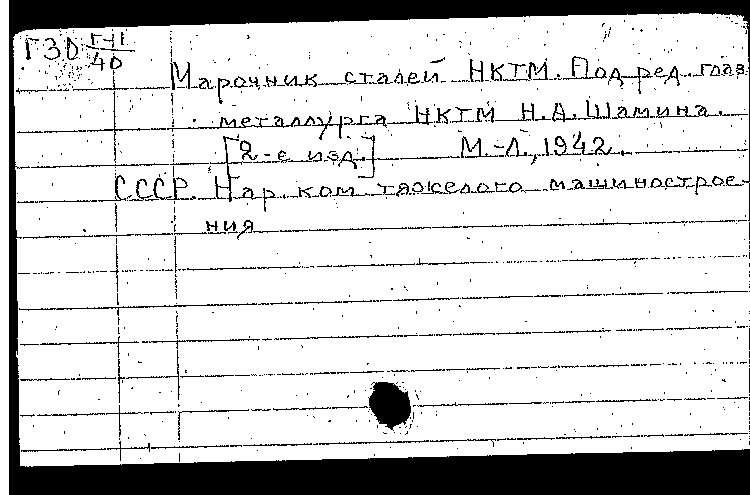 Г30 Г-11/40
Марочник сталей НКТМ. Под ред. глав
металлурга НКТМ Н.А. Шамина.
[2-е изд.] М.-Л., 1942.
СССР. Нар. ком. тяжелого машинострое-
ния